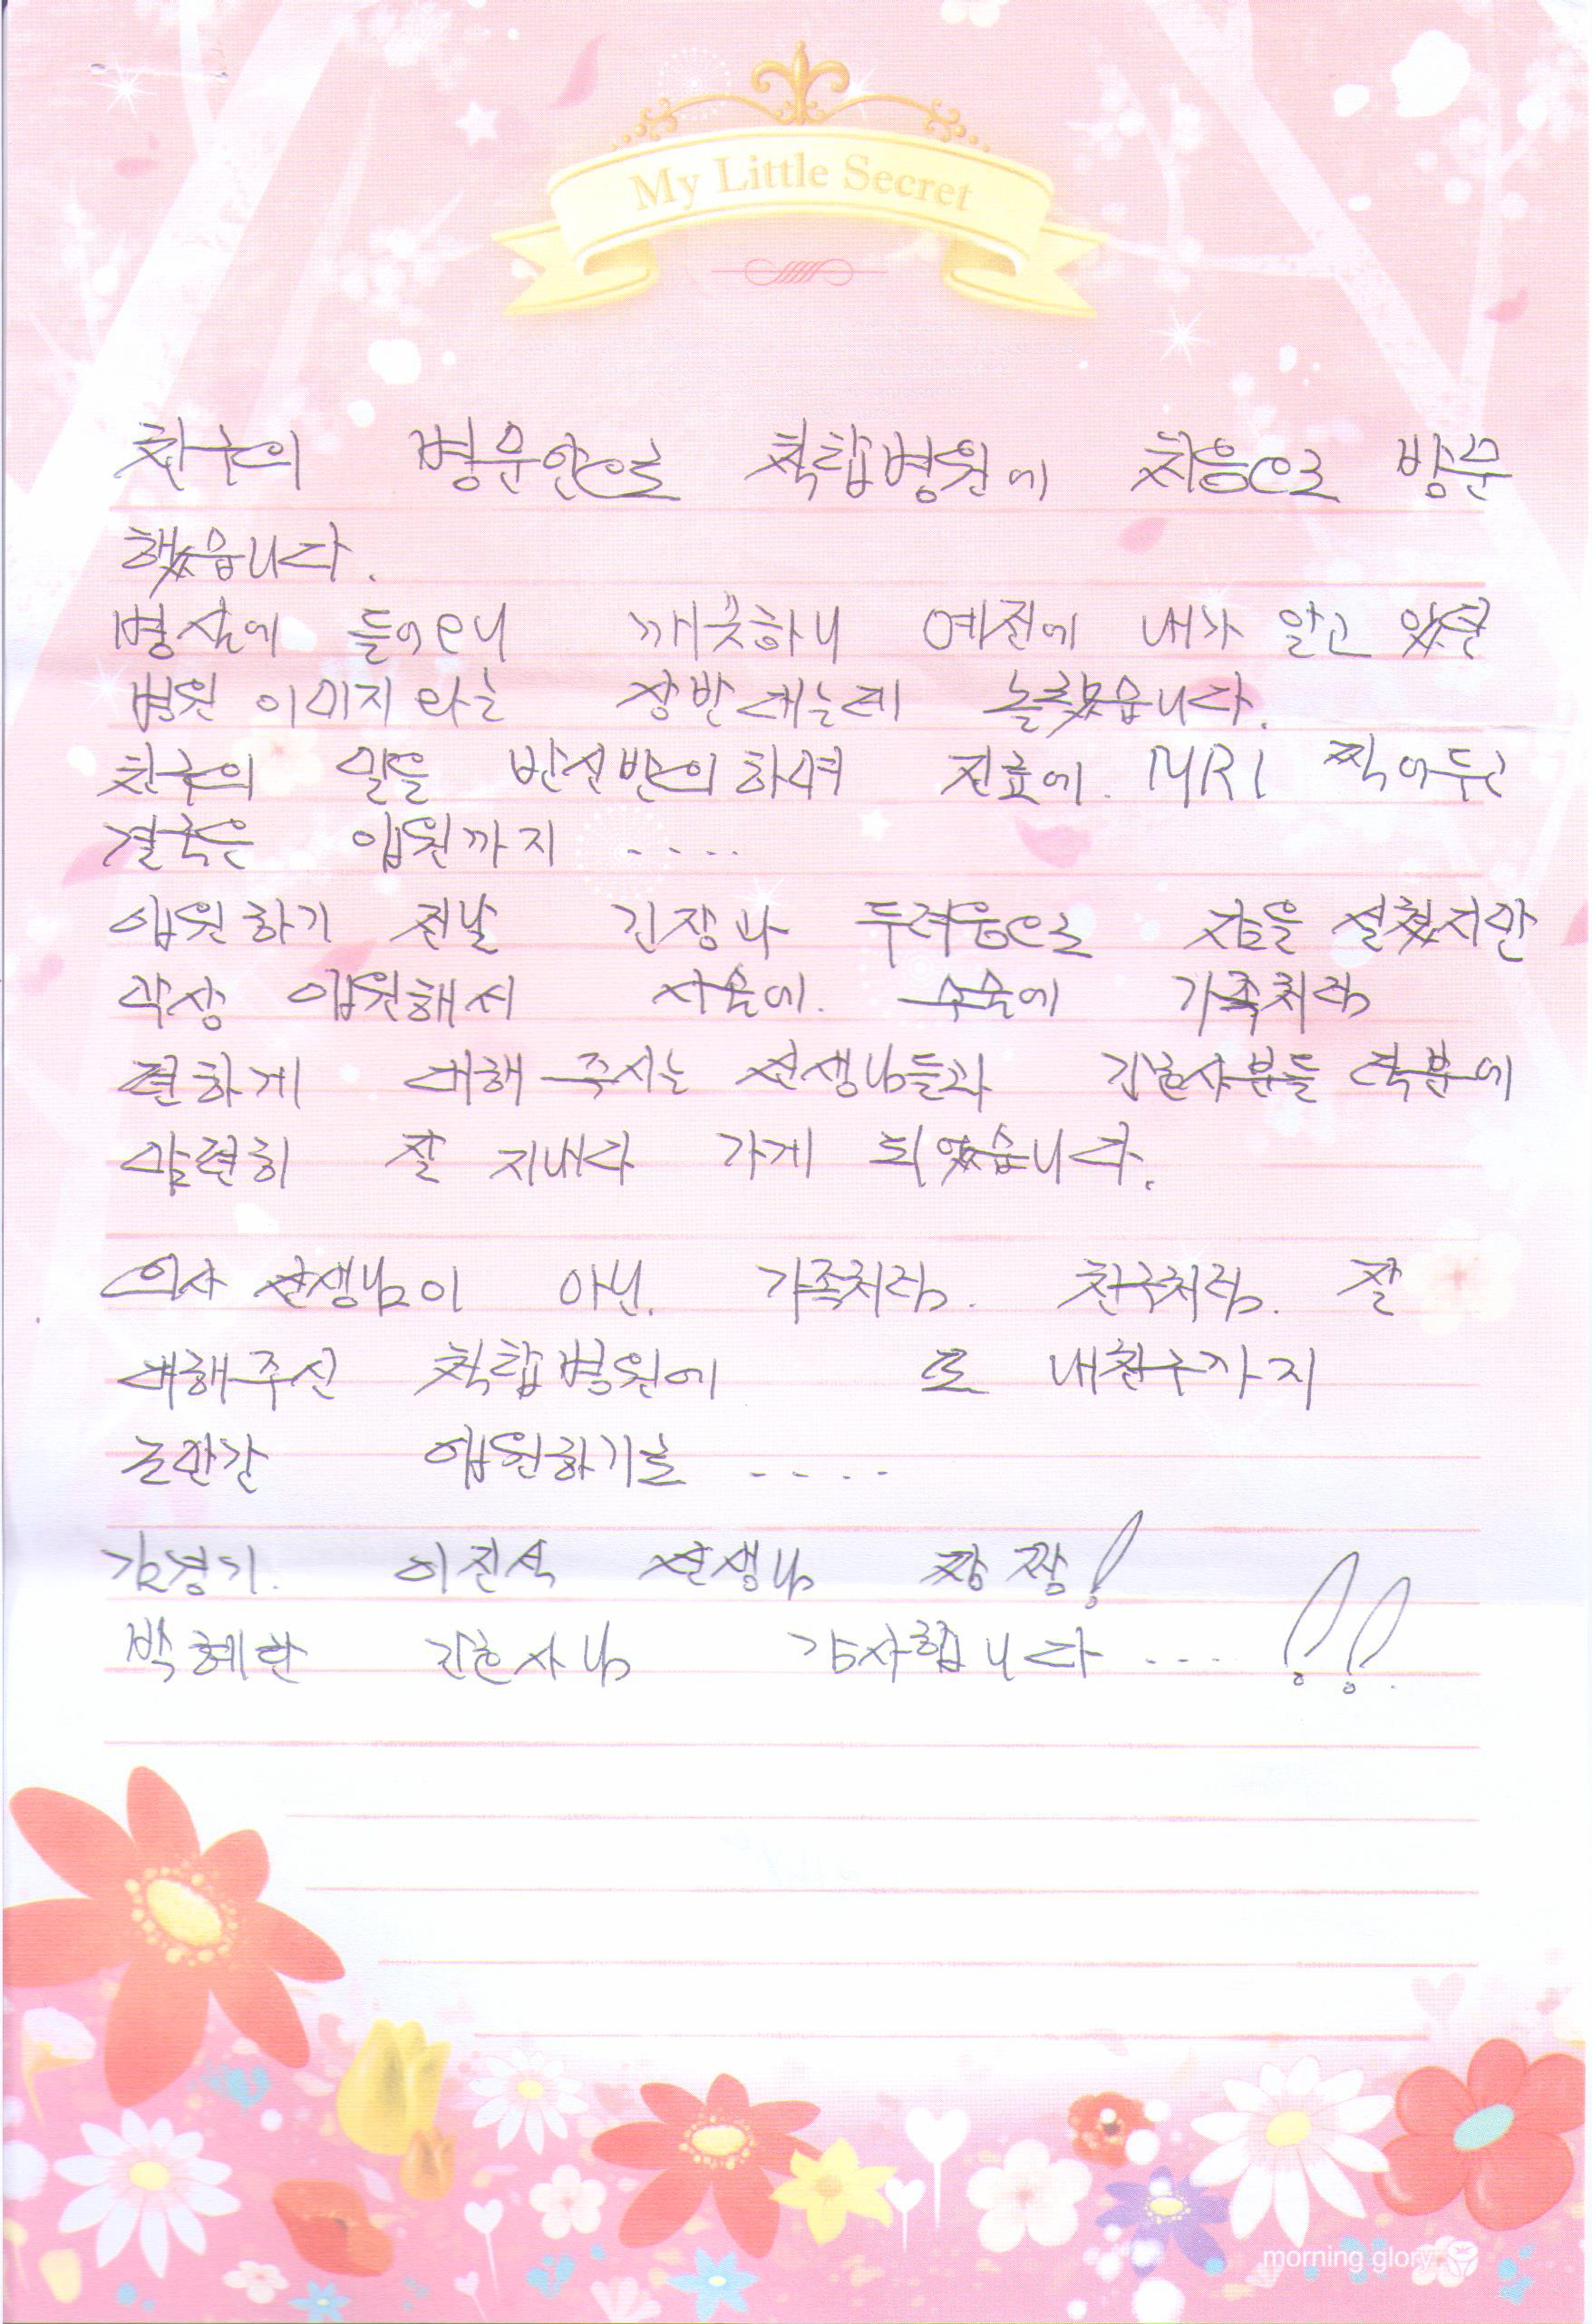 My Little Secret
친구의 병문안으로 척탑병원에 처음으로 방문
했습니다.
병실에 들어오니 깨끗하니 예전에 내가 알고 있던
병원 이미지와는 상반대는데 놀랬습니다.
친구의 말을 반신반의하며 진료에. MRI 찍어두고
결국은 입원까지 ....
입원하기 전날 긴장과 두려움으로 잠을 설쳤지만
막상 입원해서 시술에. 수술에 가족처럼
편하게 대해 주시는 선생님들과 간호사분들 덕분에
맘편히 잘 지내다 가게 되었습니다.
의사 선생님이 아닌. 가족처럼. 친구처럼. 잘
대해주신 척탑병원에 또 내친구까지
조만간 입원하기로 ....
김경기. 이진석 선생님 짱짱!
박혜란 간호사님 감사합니다 .... !!
morning glory